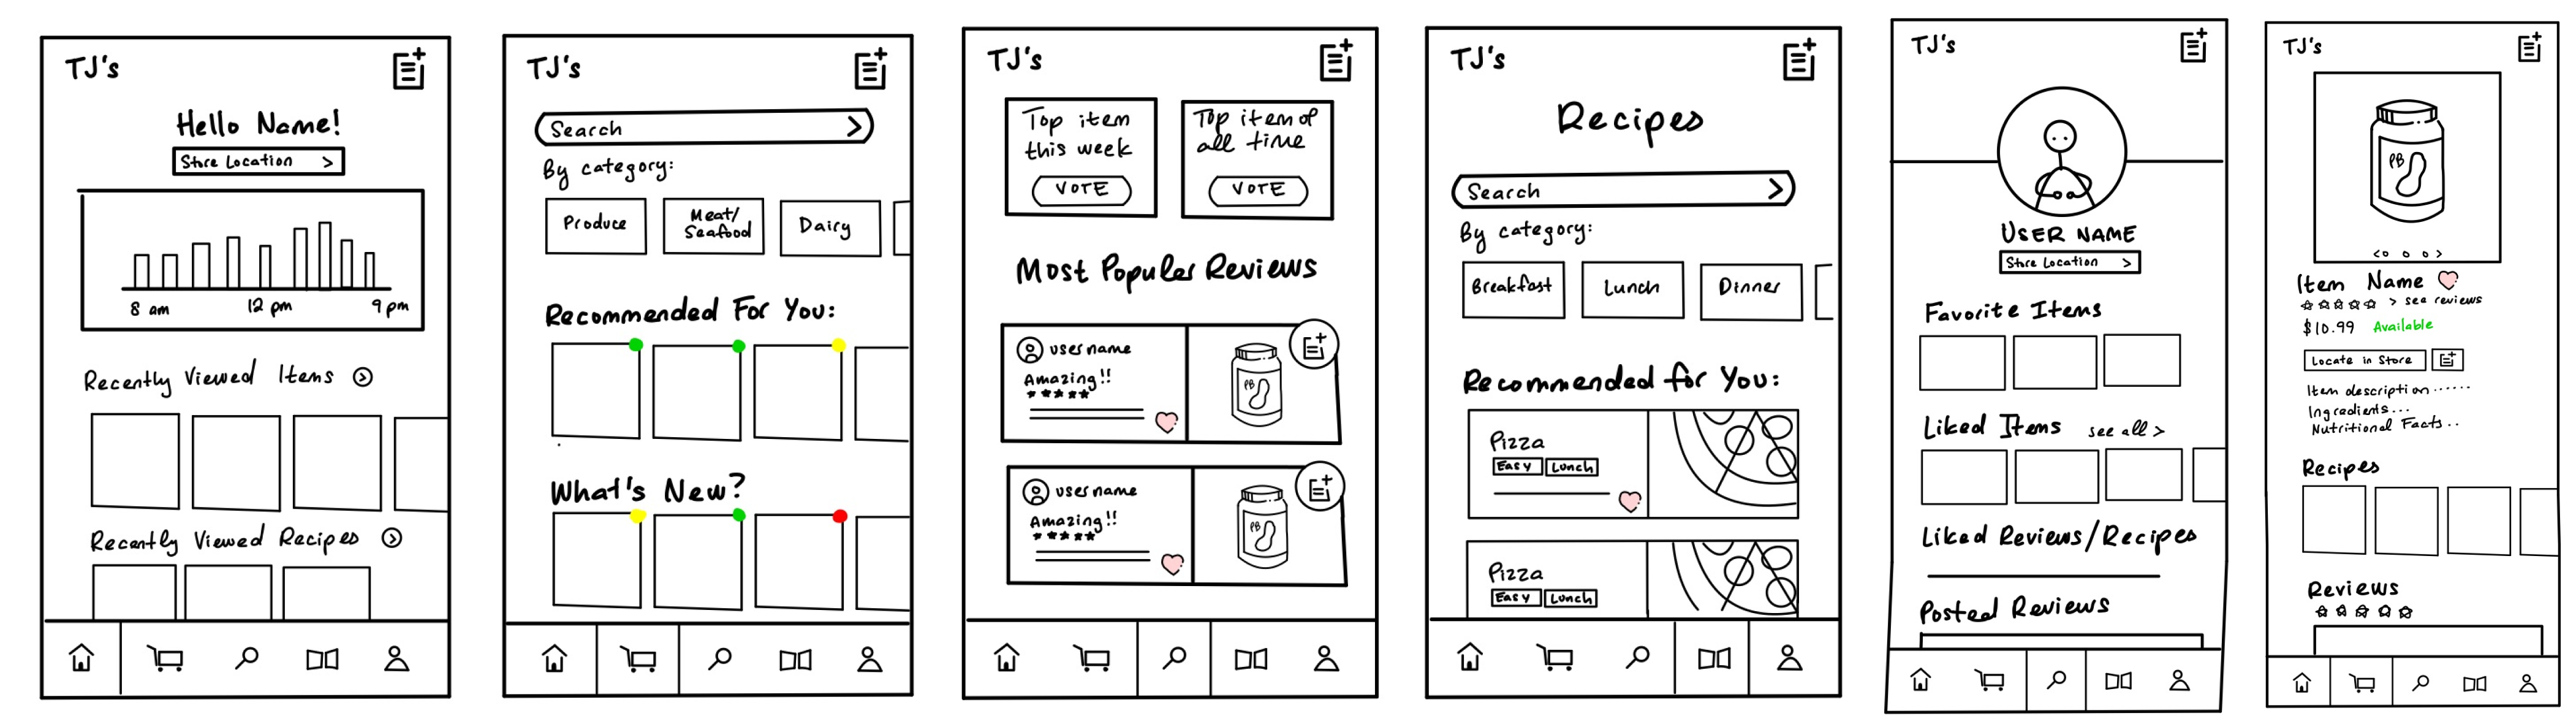 TJ's
Hello Name!
Store Location >
8 am 12 pm 9 pm
Recently Viewed Items
Recently Viewed Recipes
TJ's
Search
By category:
Produce
Meat/
Seafood
Dairy
Recommended For You:
What's New?
TJ's
Top item
this week
VOTE
Top item of
all time
VOTE
Most Populer Reviews
username
Amazing!!
PB
username
Amazing!!
PB
TJ's
Recipes
Search
By category:
Breakfast
Lunch
Dinner
Recommended for You:
Pizza
Easy Lunch
Pizza
Easy Lunch
TJ's
USER NAME
Store Location >
Favorite Items
Liked Items see all >
Liked Reviews/Recipes
Posted Reviews
TJ's
PB
Item Name
> see reviews
$10.99 Available
Locate in Store
Item description......
Ingredients...
Nutritional Facts..
Recipes
Reviews